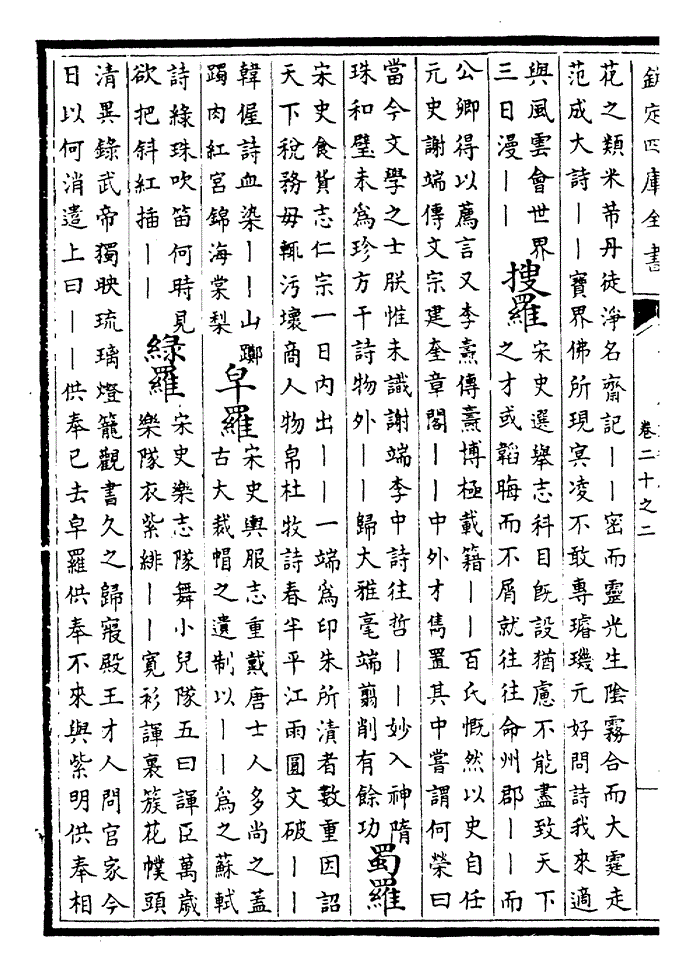 欽定四庫全書
卷二十之二
花之類米芾丹徒淨名齋記——密而靈光生陰霧合而大霆走
范成大詩——寳界佛所現冥凌不敢專璿璣元好問詩我來適
與風雲會世界
三日漫——
搜羅
宋史選舉志科目既設猶慮不能盡致天下
之才或韜晦而不屑就往往命州郡——而
公卿得以薦言又李燾傳燾博極載籍——百氏慨然以史自任
元史謝端傳文宗建奎章閣——中外才雋置其中嘗謂何榮曰
當今文學之士朕惟未識謝端李中詩往哲——妙入神隋
珠和璧未為珍方干詩物外——歸大雅毫端翦削有餘功
蜀羅
宋史食貨志仁宗一日内出——一端為印朱所漬者數重因詔
天下稅務毋輒污壞商人物帛杜牧詩春半平江雨圓文破——
韓偓詩血染——山躑
躅肉紅宫錦海棠梨
皁羅
宋史輿服志重戴唐士人多尚之蓋
古大裁帽之遺制以——為之蘇軾
詩緑珠吹笛何時見
欲把斜紅插——
緑羅
宋史樂志隊舞小兒隊五曰諢臣萬歲
樂隊衣紫緋——寛衫諢裹簇花幞頭
清異錄武帝獨映琉璃燈籠觀書久之歸寢殿王才人問官家今
日以何消遣上曰——供奉已去皁羅供奉不來與紫明供奉相